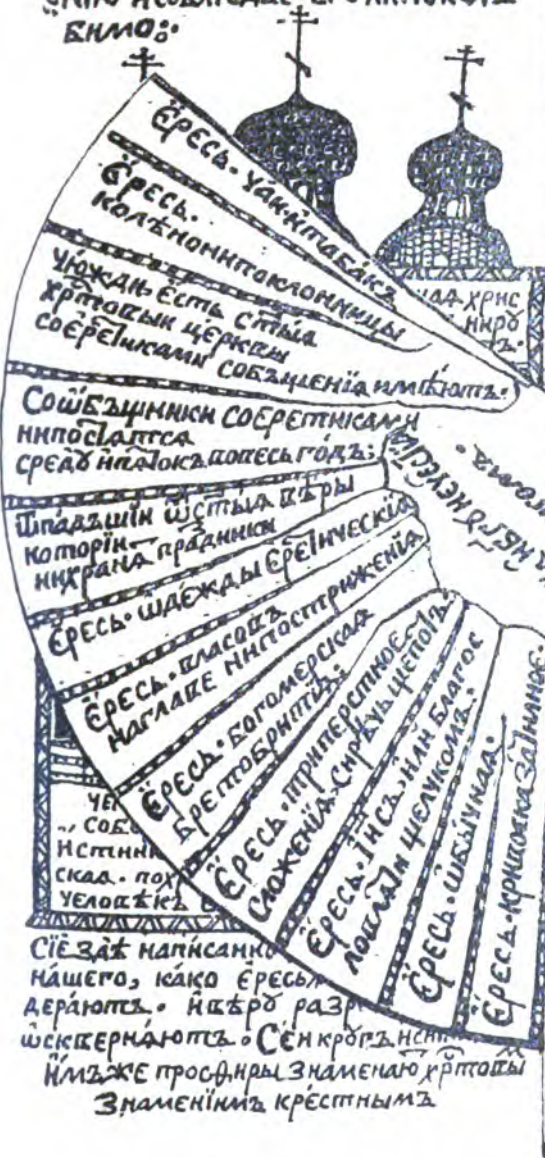 БИМО:
ЕРЕСЬ. ЧАЙ И ТАБАКЪ
ЕРЕСЬ.
КОЛѢНОНИПОКЛОННИЦЫ
ЧЮЖДИ ЕСТЬ СТЫА
ХРТОВЫИ ЦЕРКВЫ
СОЕРЕТИКАМИ СОБЪЩЕНІА ИМѢЮТЪ:
СОѠБЪЩНИКИ СОЕРЕТИКАМИ
НИПОСТАТСА
СРЕДУ ИПАТОКЪ ВОВЕСЬ ГОДЪ:
ѾПАДЪШІИ ѾСТЫА ВѢРЫ
КОТОРІИ
НИХРАНА ПРАДНИКИ
ЕРЕСЬ. ѠДЕЖДЫ ЕРЕТИЧЕСКІА
ЕРЕСЬ. ВЛАСОВЪ
НАГЛАВЕ НИПОСТРИЖЕНІА
ЕРЕСЬ. БОГОМЕРСКАА
БРЕТОБРИТІЕ:
ЕРЕСЬ. ТРИПЕРСТНОЕ
СЛОЖЕНІА. СИРѢЧЬ ЩЕПОТЬ
ЕРЕСЬ. ІИСЪ. ИЛИ БЛАГОС
ЛОВЛАТИ ЩЕЛЧКОМЪ:
ЕРЕСЬ. ѠБЫЧНАА.
ЕРЕСЬ.
ЧАА ХРИС
НИРО
ТЪ:
ЧЕ
СОБО
ИСТИНН
СКАА. ПОХ
ЧЕЛОВѢКЪ
СІЕ ЗДѢ НАПИСАННО
НАШЕГО, КАКО ЕРЕСЬ
ДЕРАЮТЪ. ИВѢРУ РАЗР
ѠСКВЕРНАЮТЪ. СЕИ КРУГЪ
ИМЪЖЕ ПРОСФИРЫ ЗНАМЕНАЮ ХРТОВЫ
ЗНАМЕНІИМЪ КРЕСТНЫМЪ